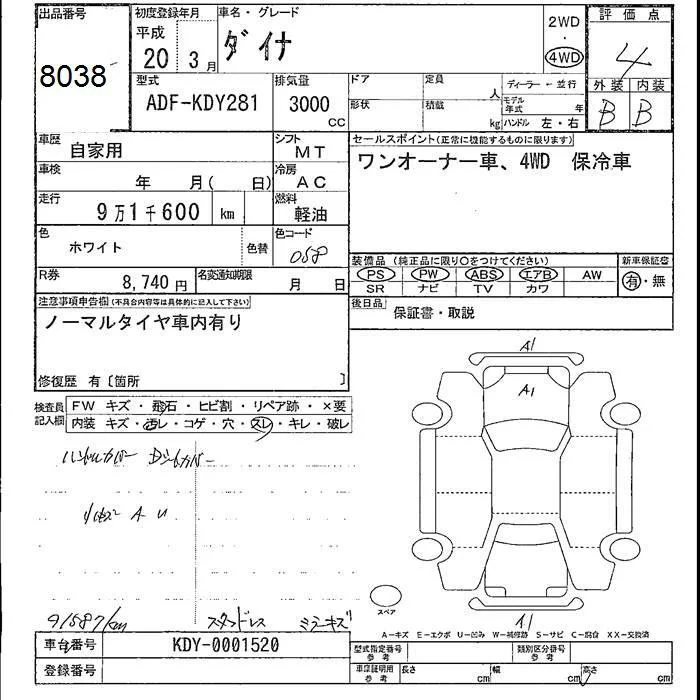 出品番号 初度登録年月 車名・グレード 評価点
8038 平成 20 3月 ダイナ 2WD・4WD 4
型式 排気量 ドア 定員 人 ディーラー・並行 外装 内装
ADF-KDY281 3000 cc 形状 積載 kg モデル年式 年 ハンドル 左・右 B B
車歴 自家用 シフト MT セールスポイント(正常に機能するものに限ります)
車検 年 月( 日) 冷房 AC ワンオーナー車、4WD 保冷車
走行 9万1千600 km 燃料 軽油
色 ホワイト 色替 色コード 058
装備品(純正品に限り○をつけてください) 新車保証書
PS PW ABS エアB AW 有・無
SR ナビ TV カワ
R券 8,740円 名変通知期限 月 日
後日品 保証書・取説
注意事項申告欄(不具合内容等は具体的に記入して下さい)
ノーマルタイヤ車内有り
修復歴 有〔箇所 〕
検査員記入欄 FW キズ・飛石・ヒビ割・リペア跡・×要
内装 キズ・汚レ・コゲ・穴・スレ・キレ・破レ
A1
A1
ハンドルカバー
A U
スペア
91587km スタッドレス ミラーキズ
A1
A-キズ E-エクボ U-凹み W-補修跡 S-サビ C-腐食 XX-交換済
車台番号 KDY-0001520 型式指定番号 参考 類別区分番号 参考
登録番号 車庫証明用 参考 長さ cm 幅 cm 高さ cm